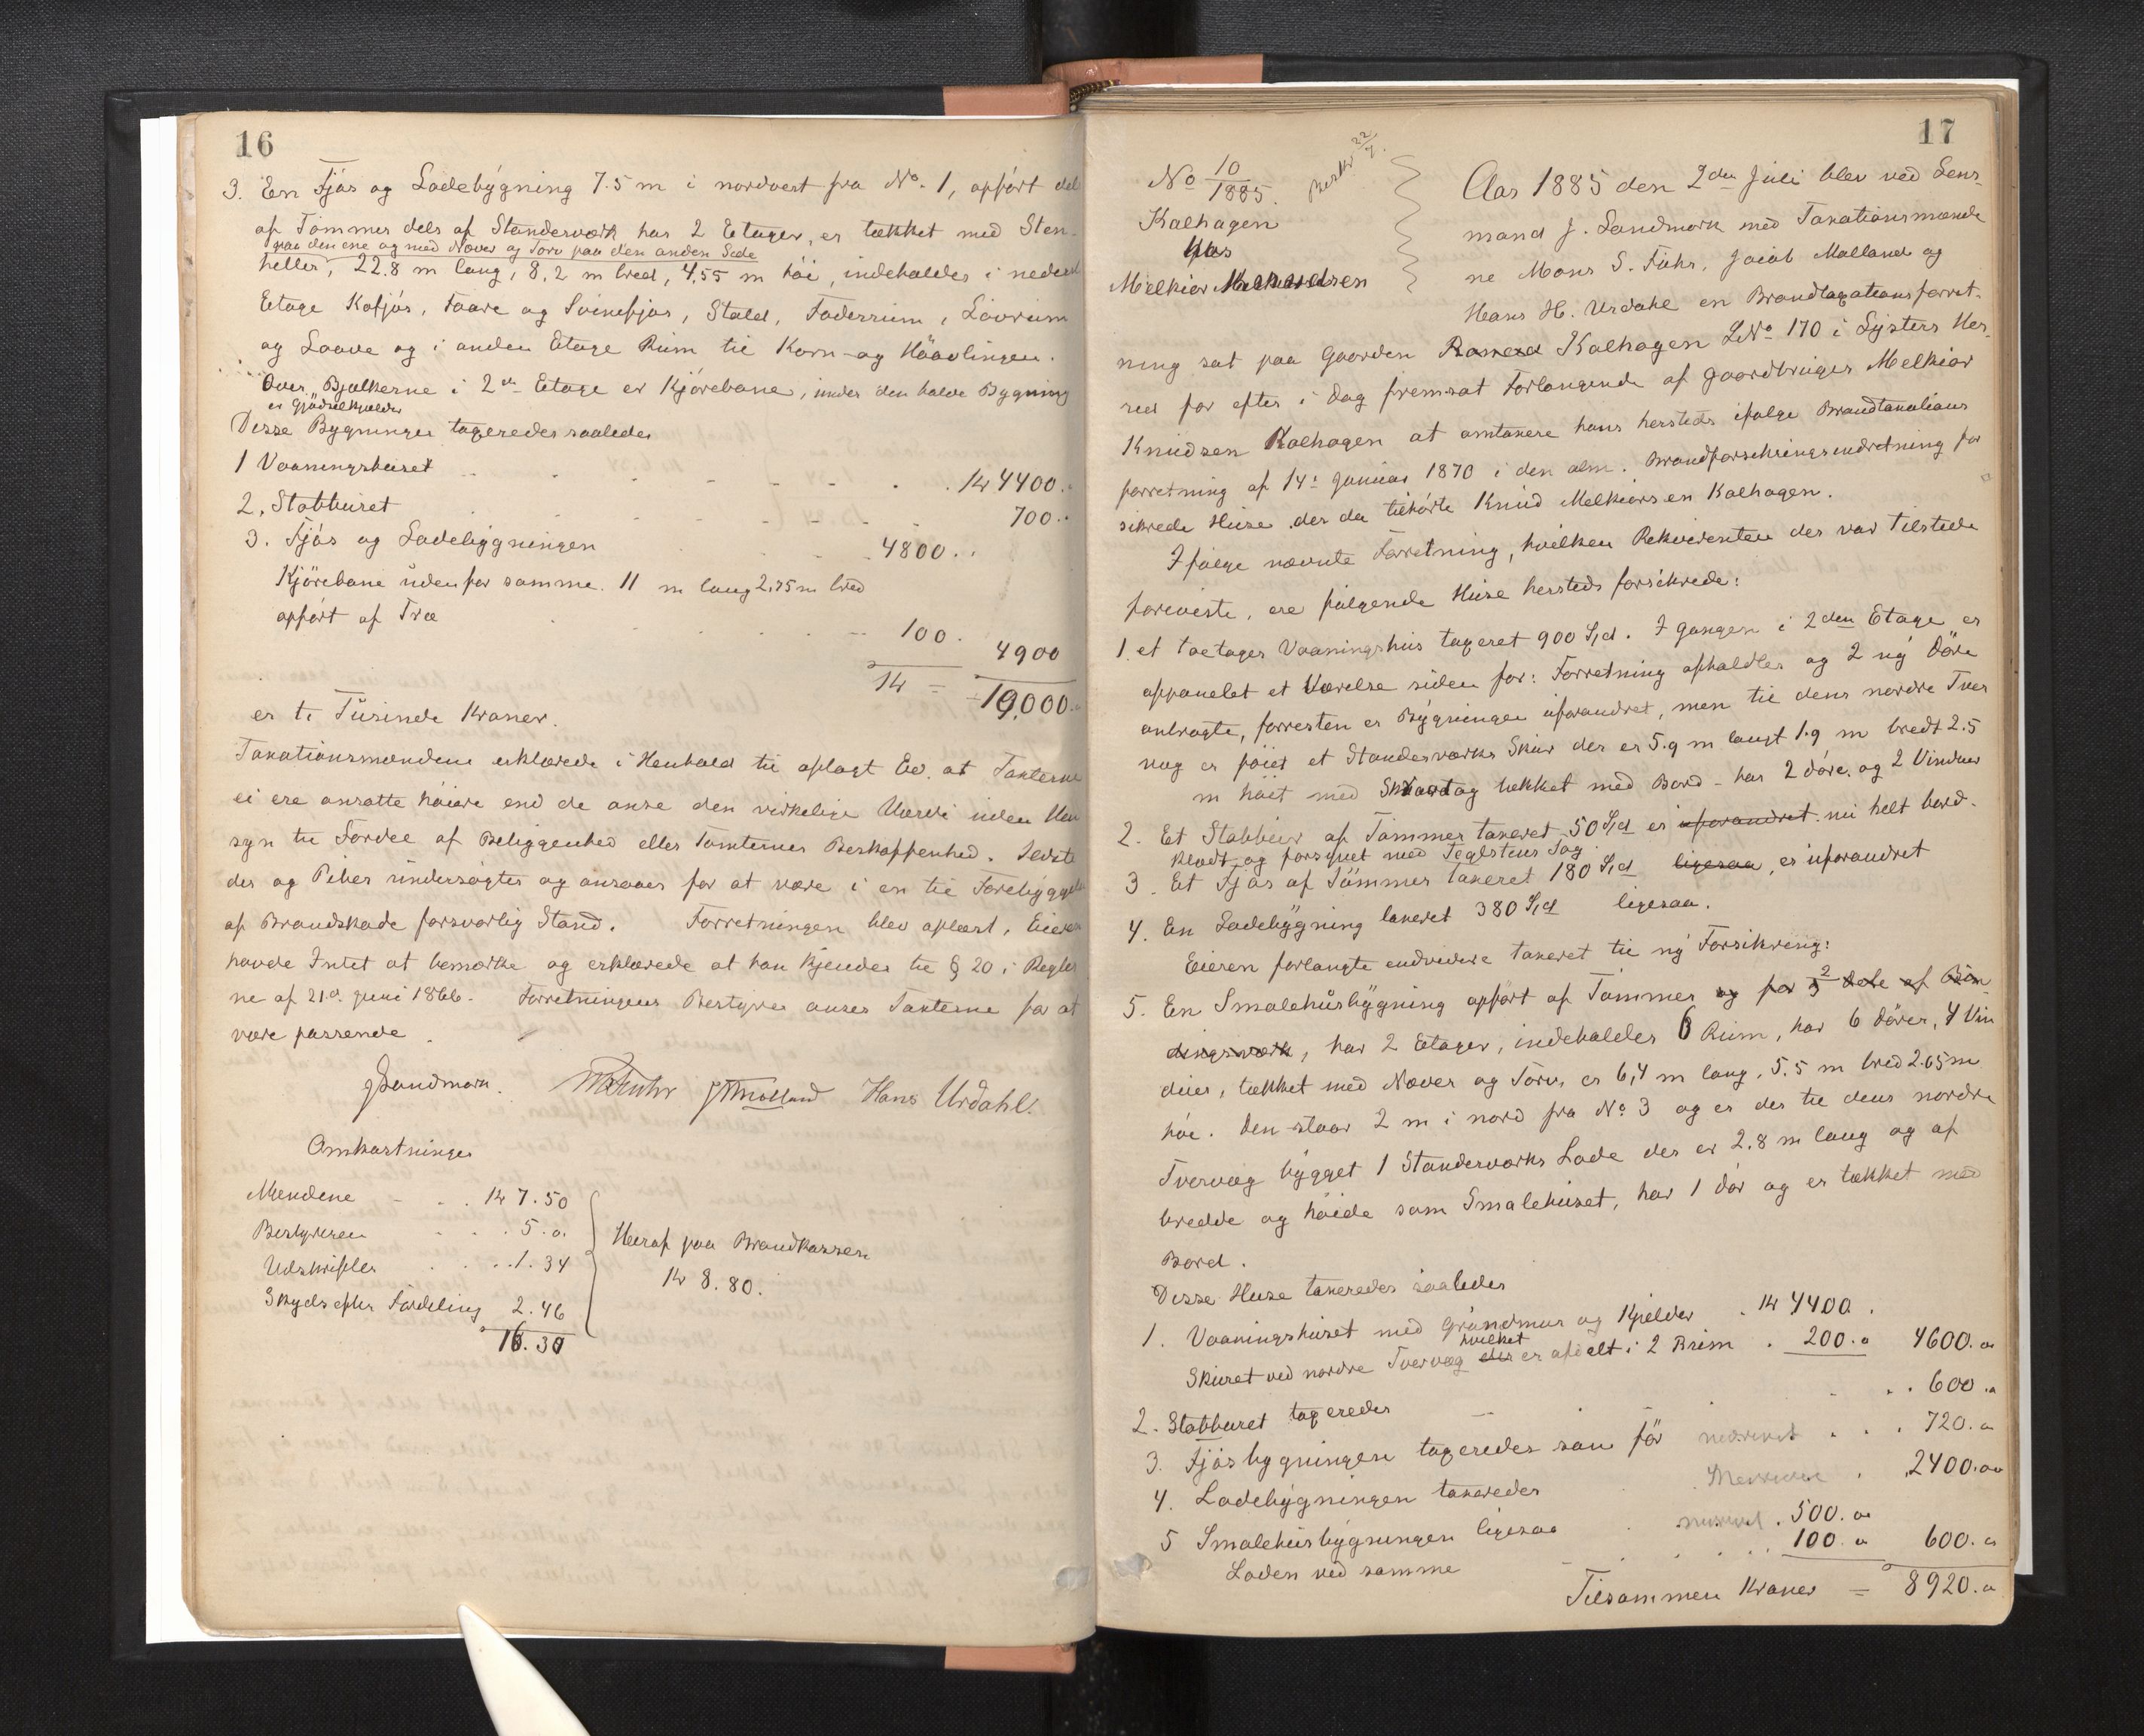 16
3. En Fjøs og Ladebygning 7.5 m i nordvest fra No. 1, opført del
af Tømmer dels af Standerværk har 2 Etager, er tækket med Sten-
paa den ene og med Næver og Torv paa den anden Side
heller, 22.8 m lang, 8,2 m bred, 4,55 m høi, indeholder i nederst
Etage Kofjøs, Faare og Svinefjøs, Stald, Foderrum, Løvrum
og Laave og i anden Etage Rum til Korn- og Höavlingen.
Over Bjælkerne i 2den Etage er Kjørebane, under den halve Bygning
er Gjødselkjelder
Disse Bygninger taxeredes saaledes
1 Vaaningshuset - - - - - . Kr 4400.
2. Stabburet - - - - 700.
3. Fjøs og Ladebygningen - - 4800.
Kjørebane udenfor samme. 11 m lang 2,75 m bred
opført af Træ - - - 100. 4900
Kr = 10,000.
er ti Tusinde Kroner.
Taxationsmændene erklærede i Henhold til aflagt Ed. at Taxterne
ei ere ansatte høiere end de anse den virkelige Værdi uden Hen
syn til Fordel af Beliggenhed eller Tomternes Beskaffenhed. Ildste
der og Piber undersøgtes og ansaaes for at være i en til Forebyggel
af Brandskade forsvarlig Stand. Forretningen blev oplæst, Eieren
havde Intet at bemærke og erklærede at han kjender til § 20 i Regler
ne af 21de Juni 1866. Forretningens Bestyrer anser Taxterne for at
være passende.
JLandmark. MSFuhr JMolland Hans Urdahl.
Omkostninger
Mændene - . . Kr 7.50
Bestyreren . . . 5.o.
Udskrifter . . . 1.34
Skyds efter Fordeling 2.46
16.30
Heraf paa Brandkassen
Kr 8.80.
17
No 10/1885.
Beskr 22/7.
Kalhagen
hos
Melkior Melkiorsen
Aar 1885 den 2den Juli blev ved Lens-
mand J. Landmark med Taxationsmænde
ne Mons S. Fuhr, Jacob Molland og
Hans H. Urdahl en Brandtaxationsforret-
ning sat paa Gaarden Kalhagen LNo 170 i Lysters Her
red for efter i Dag fremsat Forlangende af Gaardbruger Melkior
Knudsen Kalhagen at omtaxere hans hersteds ifølge Brandtaxations
forretning af 14de Januar 1870 i den alm. Brandforsikringsindretning for
sikrede Huse der da tilhørte Knud Melkiorsen Kalhagen.
Ifølge nævnte Forretning, hvilken Rekvirenten der var tilstede
foreviste, ere følgende Huse hersteds forsikrede:
1. et toetages Vaaningshus taxeret 900 Spd. I Gangen i 2den Etage er
oppanelet et Værelse siden for: Forretning afholdtes og 2 ny Døre
anbragte, forresten er Bygningen uforandret, men til dens nordre Tver
væg er føiet et Standerværks Skur der er 5.9 m langt 1.9 m bredt 2.5
m høit med Skraatag tækket med Bord - har 2 døre og 2 Vinduer
2. Et Stabbur af Tømmer taxeret 50 Spd er uforandret nu helt bord-
klædt og forsynet med Teglstens Tag.
3. Et Fjøs af Tømmer taxeret 180 Spd ligesaa, er uforandret
4. En Ladebygning taxeret 380 Spd ligesaa.
Eieren forlangte endvidere taxeret til ny Forsikring:
5. En Smalehusbygning opført af Tømmer og for 2/3 dele af Bin
dingsværk, har 2 Etager, indeholder 6 Rum, har 6 döre, 4 Vin
duer, tækket med Næver og Torv, er 6,4 m lang, 5.5 m bred 2.65 m
høi. Den staar 2 m i nord fra No 3 og er der til dens nordre
Tvervæg bygget 1 Standerværks Lade der er 2.8 m lang og af
bredde og høide som Smalehuset, har 1 dør og er tækket med
Bord.
Disse Huse taxeredes saaledes
1. Vaaningshuset med Grundmur og Kjelder . Kr 4400.
Skuret ved nordre Tvervæg hvilket er afdelt i 2 Rum . 200.o 4600.oo
2. Stabburet taxeredes . . 600.o
3. Fjøsbygningen taxeredes som før . . . 720.o
4. Ladebygningen taxeredes . 2400.oo
5 Smalehusbygningen ligesaa . 500.oo
Laden ved samme . . . 100.o 600.o
Tilsammen Kroner = 8920.o